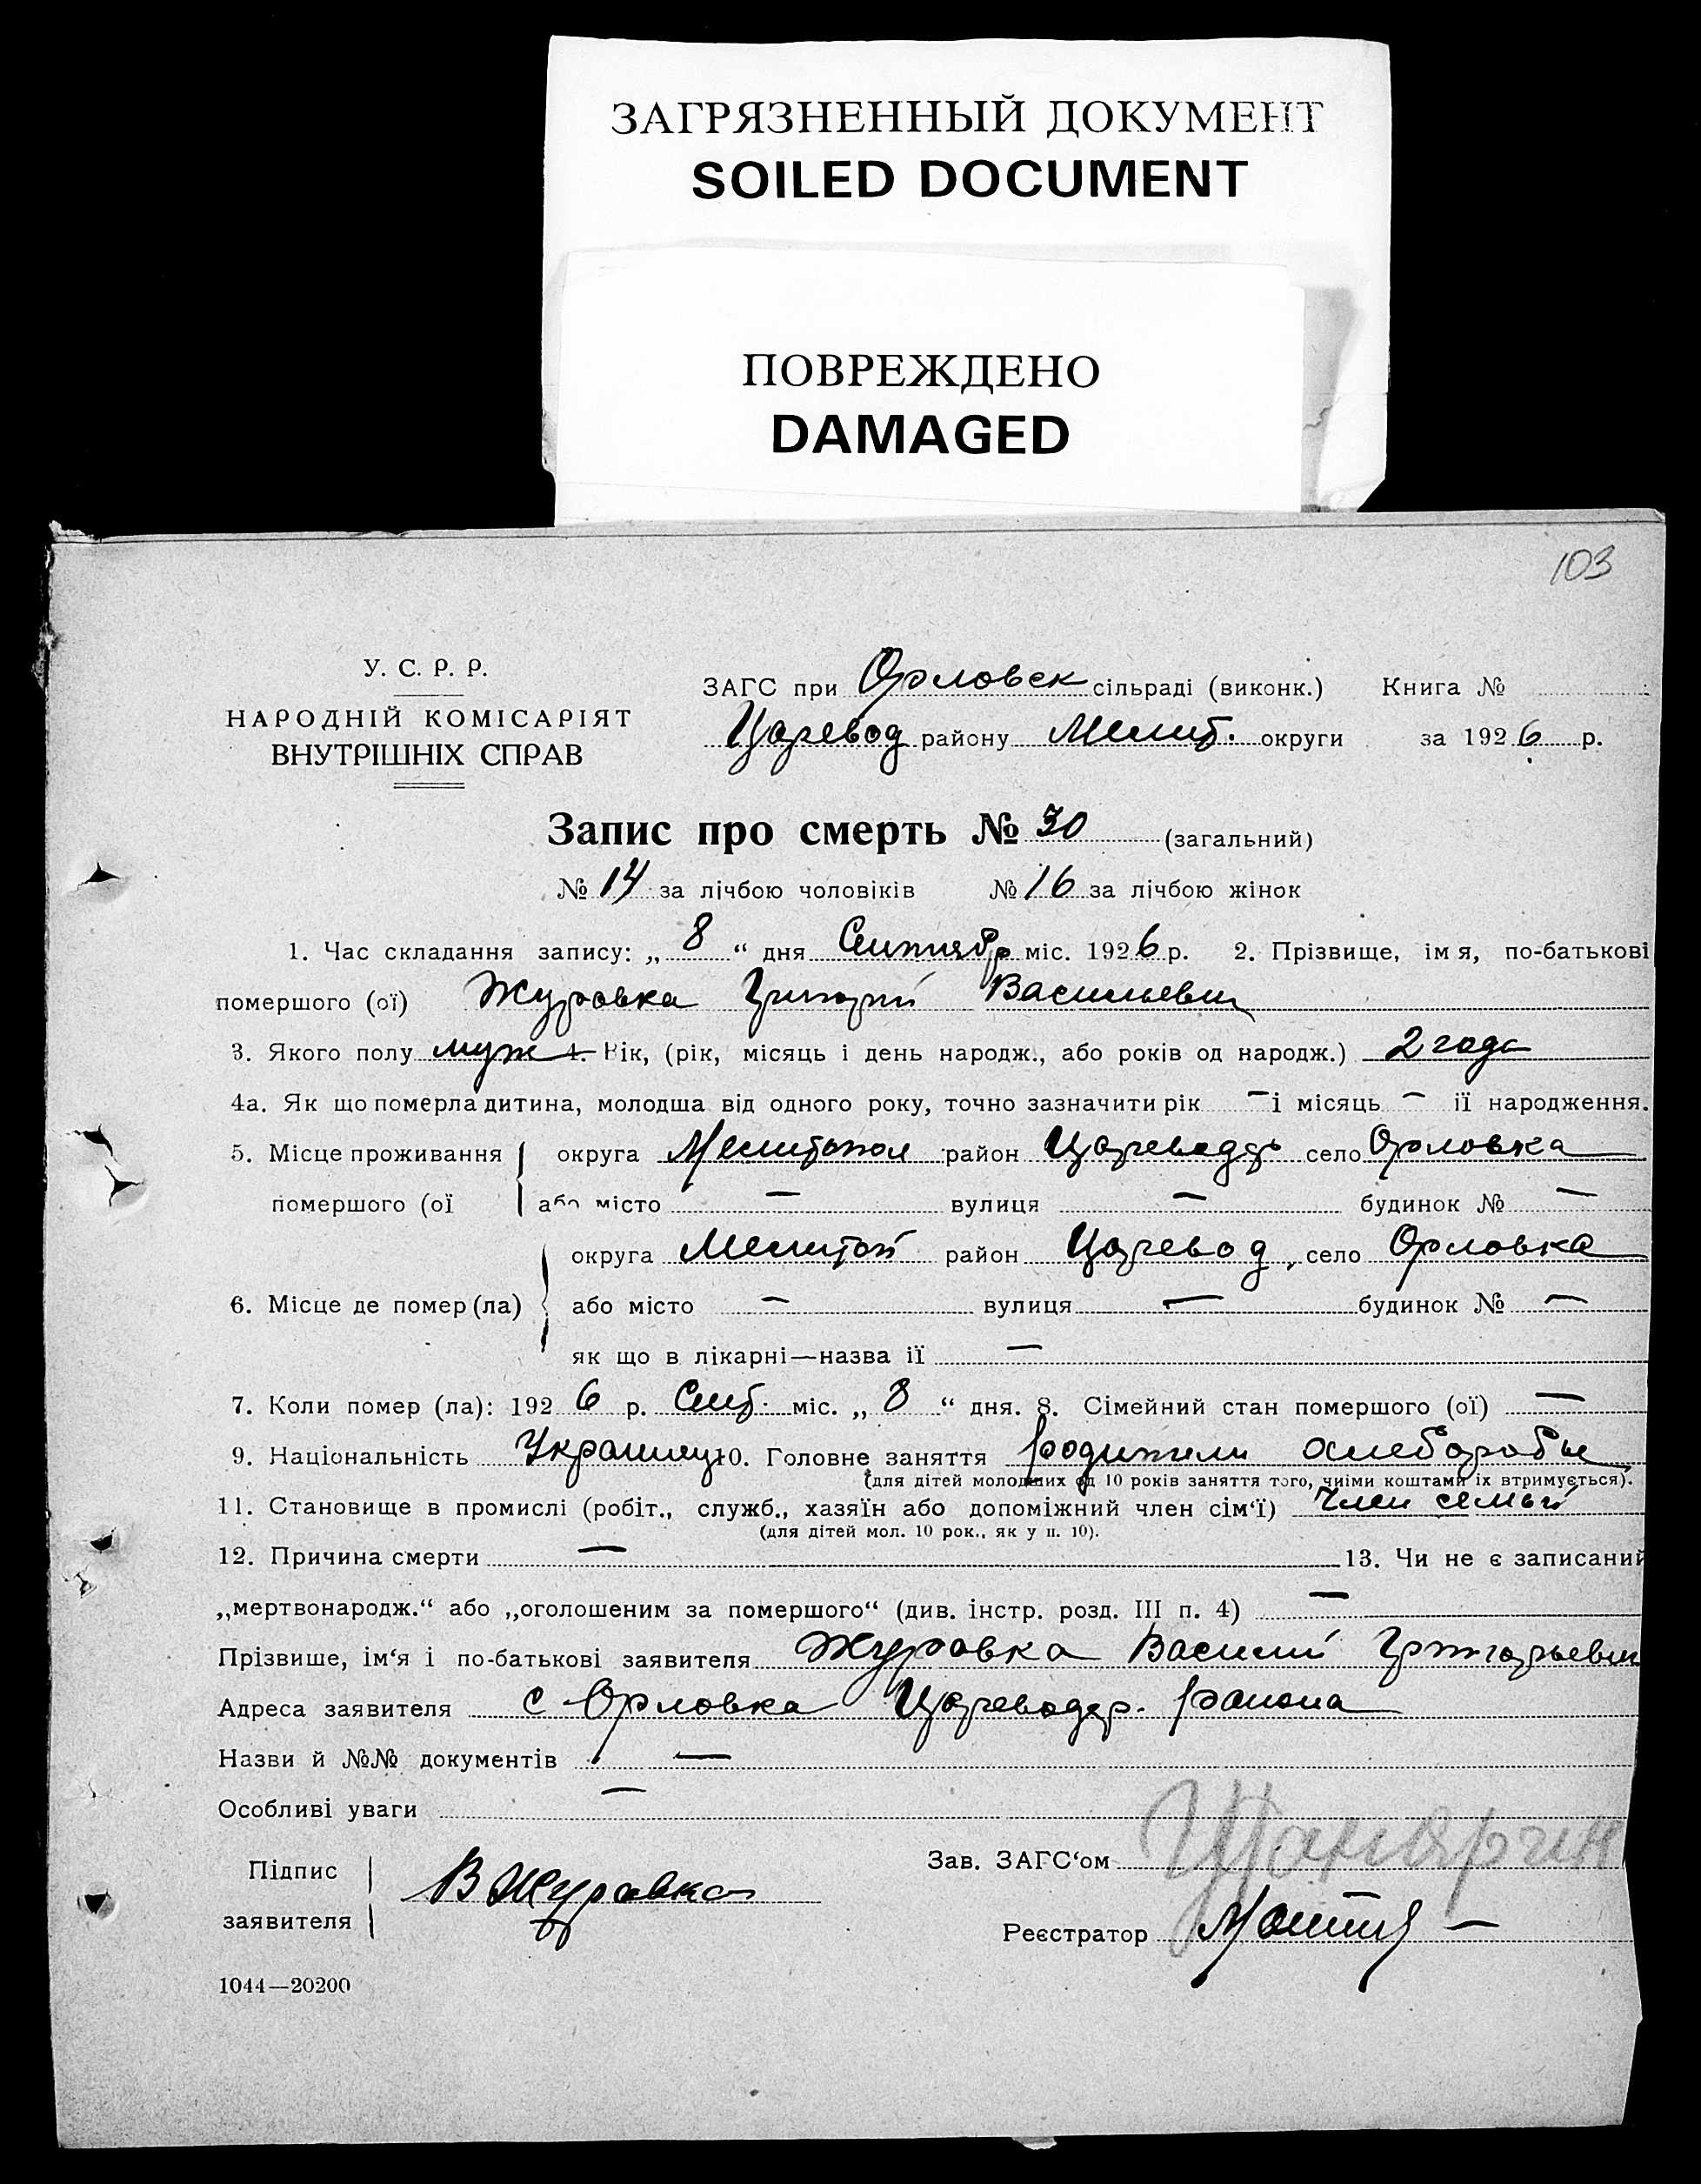 ЗАГРЯЗНЕННЫЙ ДОКУМЕНТ
SOILED DOCUMENT
ПОВРЕЖДЕНО
DAMAGED
103
У. С. Р. Р.
НАРОДНІЙ КОМІСАРІЯТ
ВНУТРІШНІХ СПРАВ
ЗАГС при Орловск сільраді (виконк.) Книга №
Царевод району Мелит. округи за 1926 р.
Запис про смерть № 30 (загальний)
№ 14 за лічбою чоловіків № 16 за лічбою жінок
1. Час складання запису: „ 8 “ дня Сентябр міс. 1926 р. 2. Прізвище, імя, по-батькові
помершого (ої) Журавка Григорий Васильевич
3. Якого полу муж 4. Вік, (рік, місяць і день народж., або років од народж.) 2 года
4а. Як що померла дитина, молодша від одного року, точно зазначити рік — і місяць — її народження.
5. Місце проживання округа Мелитопол район Цареводар село Орловка
помершого (ої або місто — вулиця — будинок № —
округа Мелитоп район Царевод село Орловка
6. Місце де помер (ла) або місто — вулиця — будинок № —
як що в лікарні—назва її —
7. Коли помер (ла): 1926 р. Сент. міс. „ 8 “ дня. 8. Сімейний стан помершого (ої) —
9. Національність Украинец 10. Головне заняття родители хлеборобы
(для дітей молодших од 10 років заняття того, чиїми коштами їх втримується).
11. Становище в промислі (робіт., служб., хазяїн або допоміжний член сім‘ї) Член семьи
(для дітей мол. 10 рок., як у п. 10).
12. Причина смерти — 13. Чи не є записаний
„мертвонародж.“ або „оголошеним за помершого“ (див. інстр. розд. III п. 4) —
Прізвище, ім‘я і по-батькові заявителя Журавка Василий Григорьевич
Адреса заявителя с Орловка Цареводар. района
Назви й №№ документів —
Особливі уваги —
Підпис
заявителя В Журавка
Зав. ЗАГС‘ом
Реєстратор
1044—20200